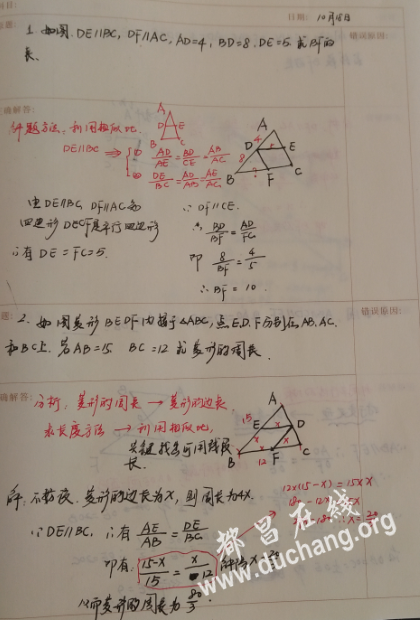 日期: 10月18日
错误原因:
1. 如图. DE∥BC, DF∥AC, AD=4, BD=8. DE=5. 求BF的
长.
确解答:
解题方法: 利用相似比.
DE∥BC ⇒ ① AD/AE = BD/CE = AB/AC
② DE/BC = AD/AB = AE/AC
A
D E
B C
A
4
D 5 E
8
B ? F C
由DE∥BC, DF∥AC知
四边形DECF是平行四边形
∴有DE=FC=5.
∵DF∥CE.
∴ BD/BF = AD/FC
即 8/BF = 4/5
∴BF=10.
题:
错误原因:
2. 如图菱形BEDF内接于△ABC, 点E.D.F分别在AB.AC.
和BC上. 若AB=15. BC=12 求菱形的周长.
确解答:
分析: 菱形的周长 → 菱形的边长.
求长度方法 → 利用相似比,
关键找各可用线段
长.
A
15
E x D
x x
B x F C
12
解: 不妨设. 菱形的边长为x, 则周长为4x.
∵DE∥BC, ∴有 AE/AB = DE/BC
即有. (15-x)/15 = x/12
12×(15-x)=15×x
从而菱形的周长为 80/3.
都昌在线
www.duchang.org